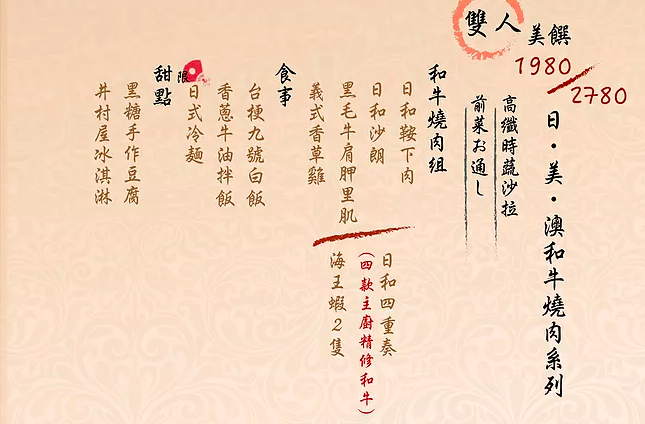 雙人美饌
1980
2780
日・美・澳和牛燒肉系列
高纖時蔬沙拉
前菜お通し
和牛燒肉組
日和鞍下肉
日和沙朗
黑毛牛肩胛里肌
義式香草雞
日和四重奏
(四款主廚精修和牛)
海王蝦2隻
食事
台梗九號白飯
香蔥牛油拌飯
限
日式冷麵
甜點
黑糖手作豆腐
井村屋冰淇淋